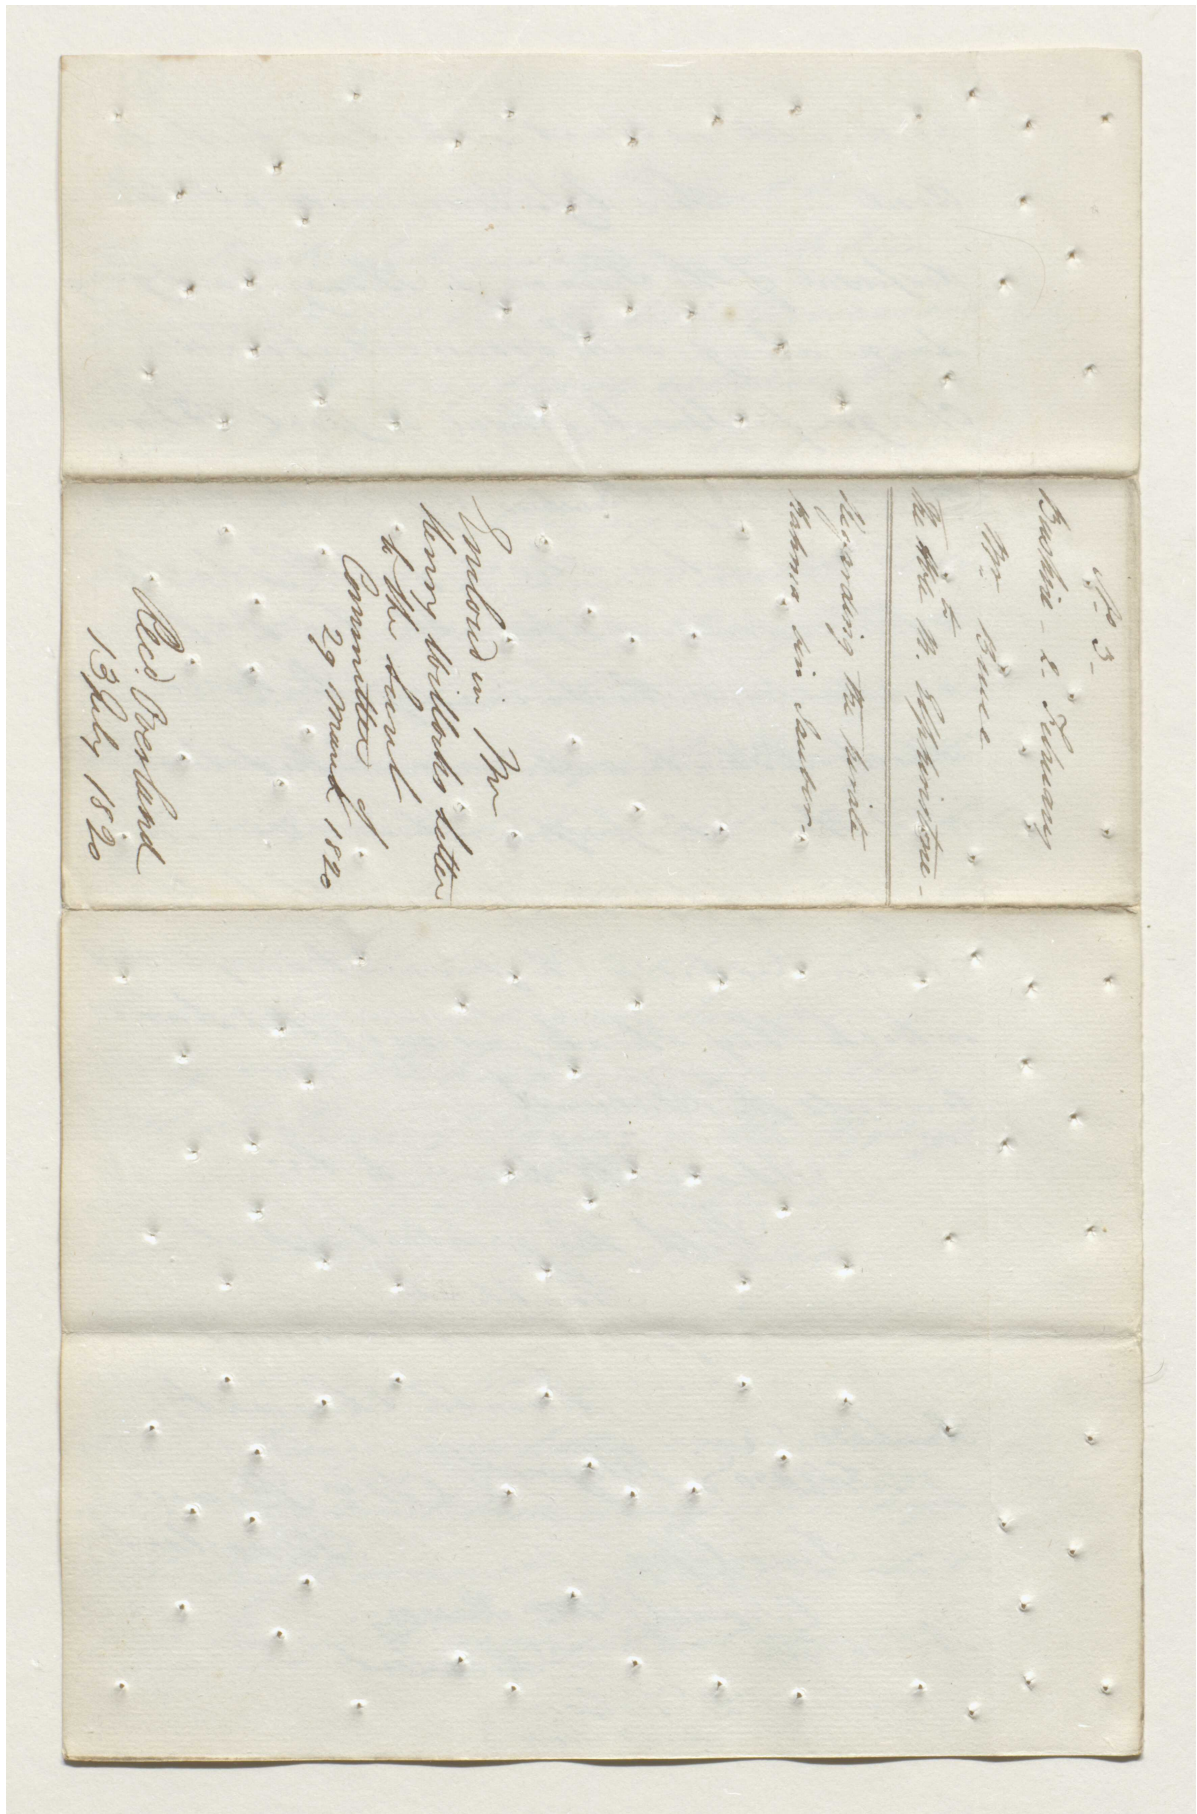 No 3 -
Bushire - 2. February
Mr Bruce
to
The Hble M. Elphinstone -
Regarding the pirate
Rahma bin Jaubir.
Enclosed in Mr
Henry Willock's letter
to the Secret
Committee of
29 March 1820
Recd Overland
13 July 1820